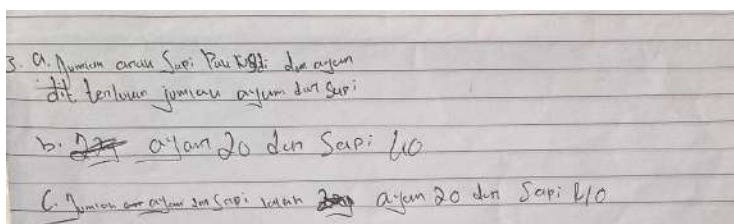 3. a. Jumlah anak Sapi Pak dan ayam
dit tentukan jumlah ayam dan Sapi
b. ayam 20 dan Sapi 40
C. Jumlah ayam dan Sapi ialah ayam 20 dan Sapi 40